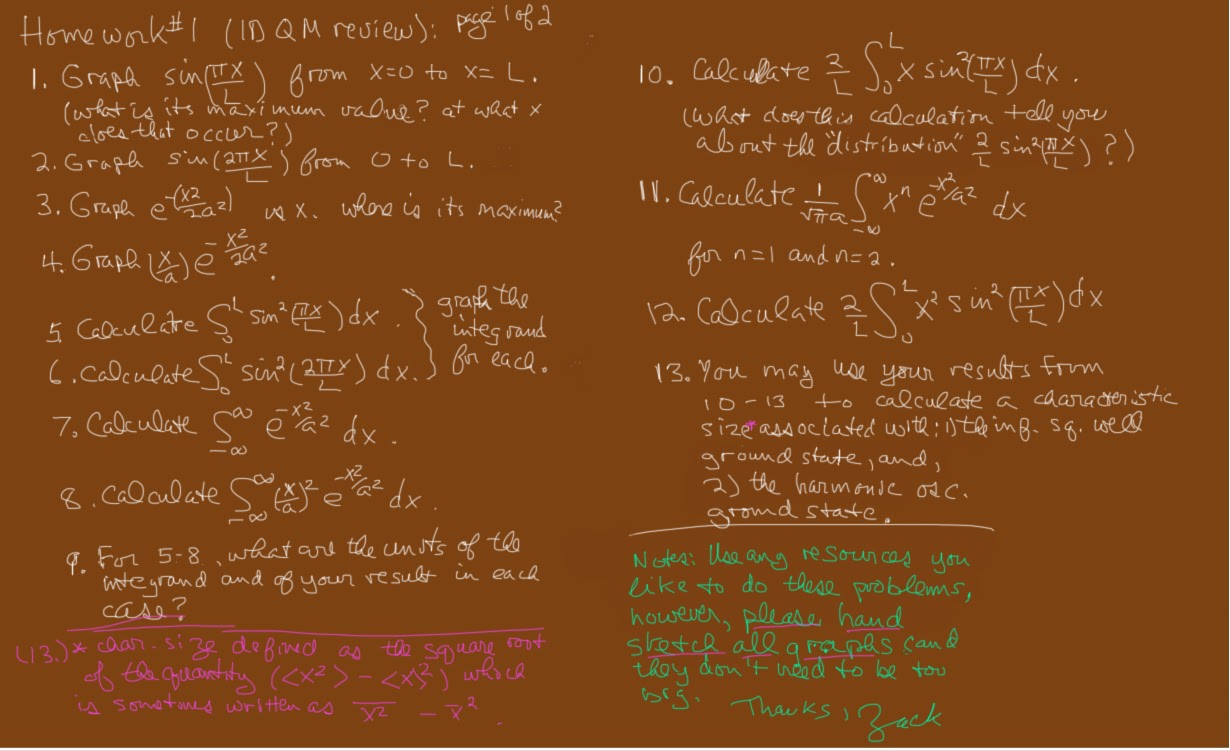 Homework #1 (1D QM review): page 1 of 2
1. Graph sin(πx/L) from x=0 to x= L.
(what is its maximum value? at what x
does that occur?)
2. Graph sin(2πx/L) from 0 to L.
3. Graph e^-(x²/2a²) vs x. where is its maximum?
4. Graph (x/a) e^-x²/2a².
5. Calculate ∫₀^L sin²(πx/L) dx.
6. Calculate ∫₀^L sin²(2πx/L) dx.
graph the
integrand
for each.
7. Calculate ∫_-∞^∞ e^-x²/a² dx.
8. Calculate ∫_-∞^∞ (x/a)² e^-x²/a² dx.
9. For 5-8, what are the units of the
integrand and of your result in each
case?
(13.)* char. size defined as the square root
of the quantity (<x²> - <x>²) which
is sometimes written as x̅²̅ - x̅².
10. Calculate 2/L ∫₀^L x sin²(πx/L) dx.
(what does this calculation tell you
about the "distribution" 2/L sin²(πx/L)?)
11. Calculate 1/√π a ∫_-∞^∞ xⁿ e^-x²/a² dx
for n=1 and n=2.
12. Calculate 2/L ∫₀^L x² sin²(πx/L) dx
13. You may use your results from
10-13 to calculate a characteristic
size* associated with: 1) the inf. sq. well
ground state, and,
2) the harmonic osc.
ground state.
Notes: Use any resources you
like to do these problems,
however, please hand
sketch all graphs (and
they don't need to be too
big.
Thanks, Zack